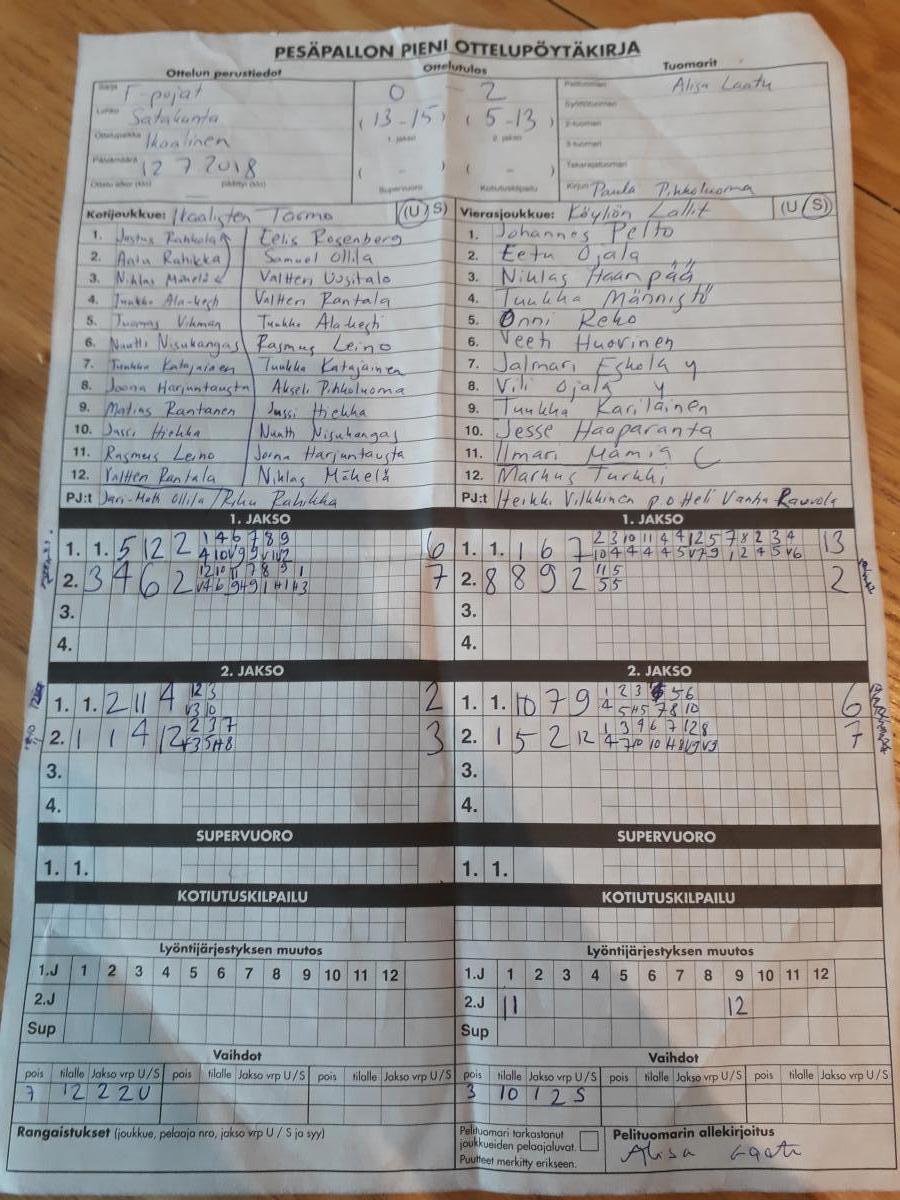 PESÄPALLON PIENI OTTELUPÖYTÄKIRJA
Ottelun perustiedot Ottelutulos Tuomarit
Sarja F-pojat
Lohko Satakunta
Ottelupaikka Ikaalinen
Päivämäärä 12 7 2018
Ottelu alkoi (klo) päättyi (klo)
0 - 2
(13-15) (5-13)
1. jakso 2. jakso
( - ) ( - )
Supervuoro Kotiutuskilpailu
Pelituomari Alisa Laatu
Syöttötuomari
2-tuomari
3-tuomari
Takarajatuomari
Kirjuri Paula Pihkoluoma
Kotijoukkue: Ikaalisten Tarmo (U/S)
1. Justus Rahkola Eelis Rosenberg
2. Antu Rahikka Samuel Ollila
3. Niklas Mäkelä Valtteri Uusitalo
4. Tuukka Ala-kesti Valtteri Rantala
5. Tuomas Vihman Tuukka Ala-kesti
6. Nuutti Nisukangas Rasmus Leino
7. Tuukka Katajainen Tuukka Katajainen
8. Joona Harjuntausta Akseli Pihkoluoma
9. Matias Rantanen Jussi Hiekka
10. Jussi Hiekka Nuutti Nisukangas
11. Rasmus Leino Joona Harjuntausta
12. Valtteri Rantala Niklas Mäkelä
PJ:t Jari-Matti Ollila / Riku Rahikka
Vierasjoukkue: Köyliön Lallit (U/S)
1. Johannes Pelto
2. Eetu Ojala
3. Niklas Haanpää
4. Tuukka Männistö
5. Onni Reko
6. Veeti Huovinen
7. Jalmari Eskola y
8. Vili Ojala y
9. Tuukka Kariläinen
10. Jesse Haaparanta
11. Ilmari Mämiä C
12. Markus Turkki
PJ:t Heikki Vilkkinen p.o Heli Vanha Rauvola
1. JAKSO
1. 1. 5 12 2 1 4 6 7 8 9 6
2. 3 4 6 2 7
3.
4.
1. JAKSO
1. 1. 1 6 7 2 3 10 11 4 4 12 5 7 8 2 3 4 13
2. 8 8 9 2 11 5 2
55
3.
4.
2. JAKSO
1. 1. 2 11 4 12 3 2
V3 10
2. 1 1 4 12 2 3 7 3
3.
4.
2. JAKSO
1. 1. 10 7 9 1 2 3 5 6 6
4 5 H5 7 8 10
2. 1 5 2 12 1 3 9 6 7 12 8 7
4 7 10 10 H8 V9 V9
3.
4.
SUPERVUORO
1. 1.
SUPERVUORO
1. 1.
KOTIUTUSKILPAILU
KOTIUTUSKILPAILU
Lyöntijärjestyksen muutos
1.J 1 2 3 4 5 6 7 8 9 10 11 12
2.J
Sup
Lyöntijärjestyksen muutos
1.J 1 2 3 4 5 6 7 8 9 10 11 12
2.J 11 12
Sup
Vaihdot
pois tilalle Jakso vrp U/S pois tilalle Jakso vrp U/S pois tilalle Jakso vrp U/S
7 12 2 2 U
Vaihdot
pois tilalle Jakso vrp U/S pois tilalle Jakso vrp U/S pois tilalle Jakso vrp U/S
3 10 1 2 S
Rangaistukset (joukkue, pelaaja nro, jakso vrp U / S ja syy)
Pelituomari tarkastanut
joukkueiden pelaajaluvat.
Puutteet merkitty erikseen.
Pelituomarin allekirjoitus
Alisa Laatu